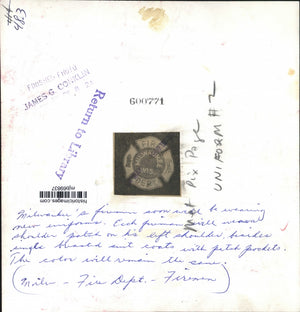 # 483
FINISHED PHOTO
JAMES G. CONKLIN
Return to Library
600771
FIRE
MILWAUKEE
DEPT.
historicimages.com
Pix Page
UNIFORM # 2
Milwaukee's firemen soon will be wearing
new uniforms. Each fireman will wear a
shoulder patch on his left shoulder, besides
single breasted suit coats with patch pockets.
The color will remain the same.
(Milw - Fire Dept. - Firemen)